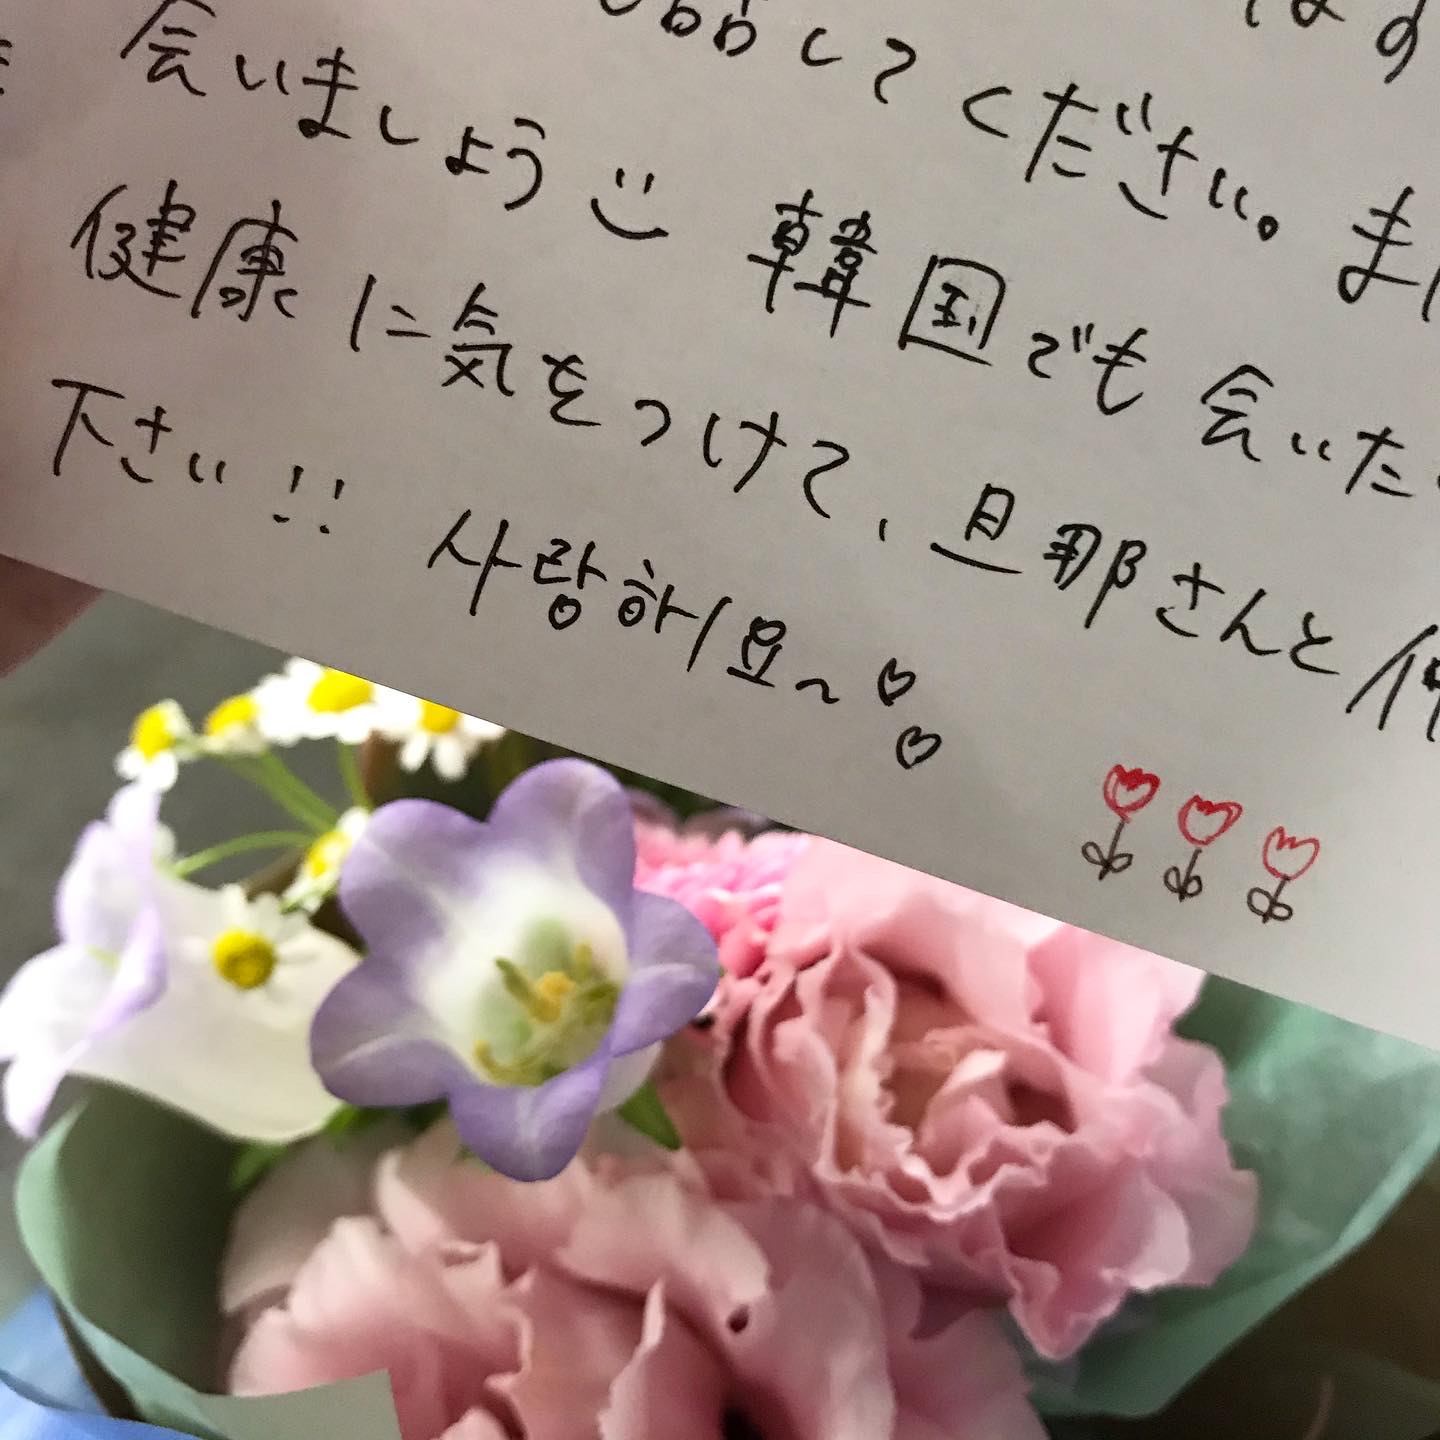 してください。ま
会いましょう 韓国でも会いた
健康に気をつけて、旦那さんと
下さい!! 사랑해요~♡♡